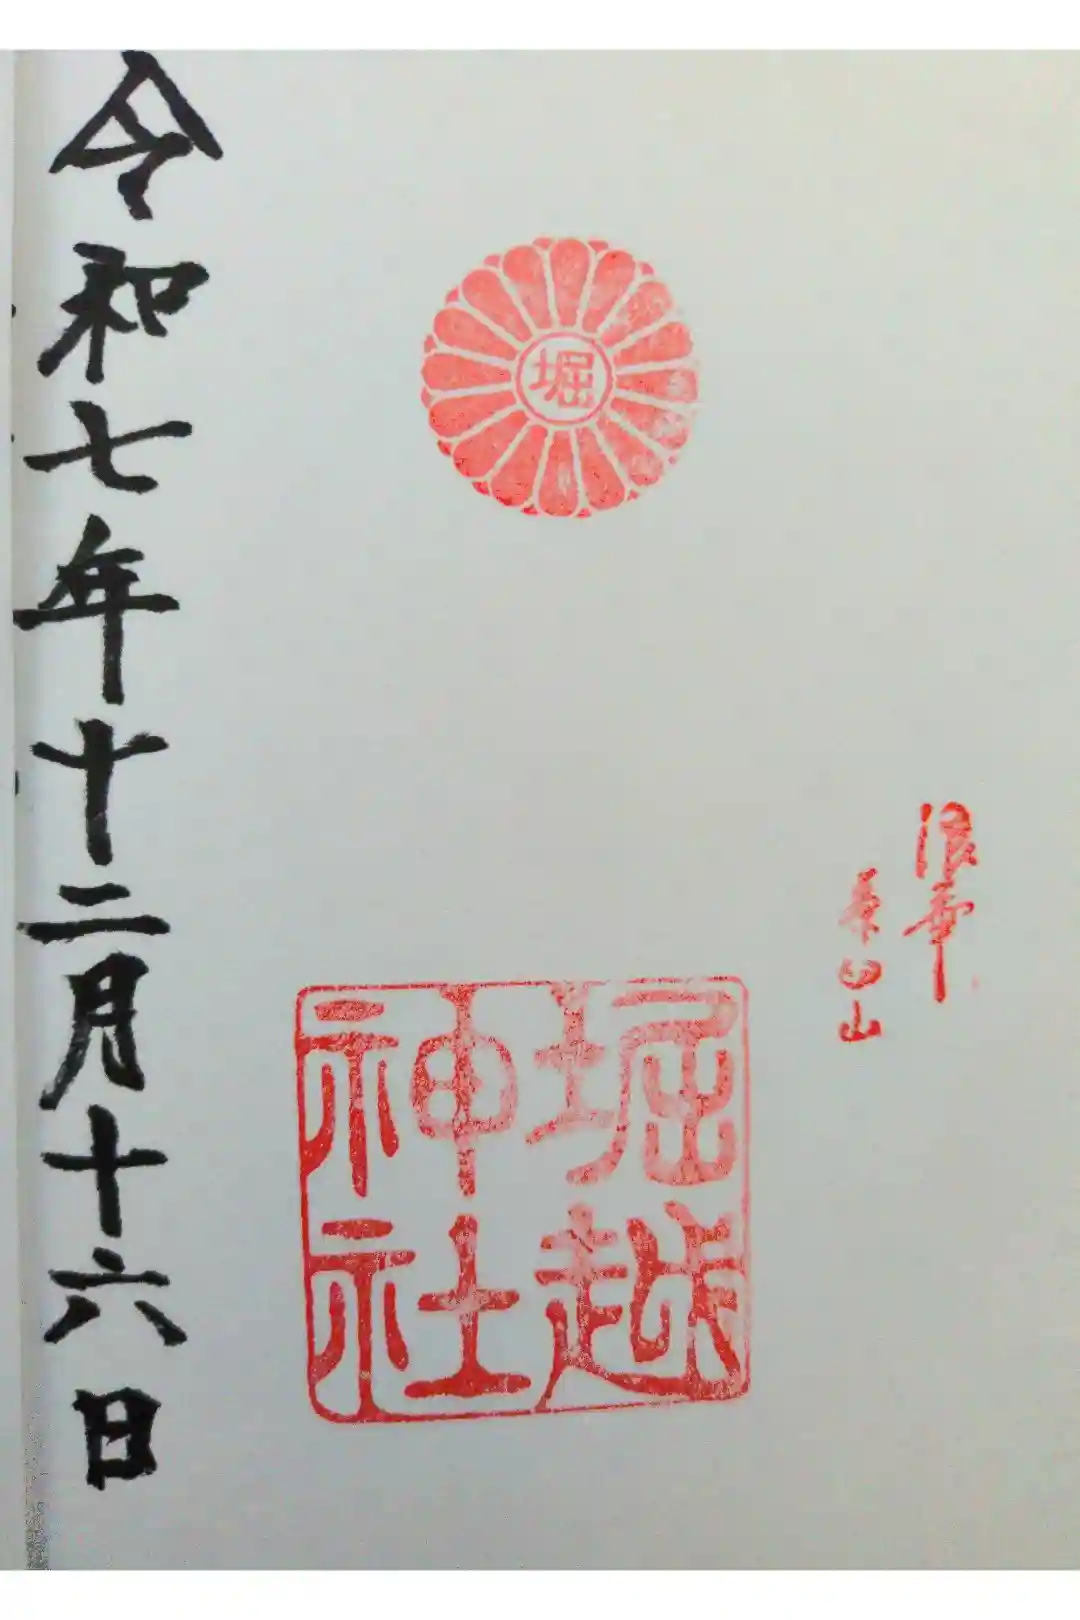 浪華
茶臼山
堀
堀越
神社
令和七年十二月十六日